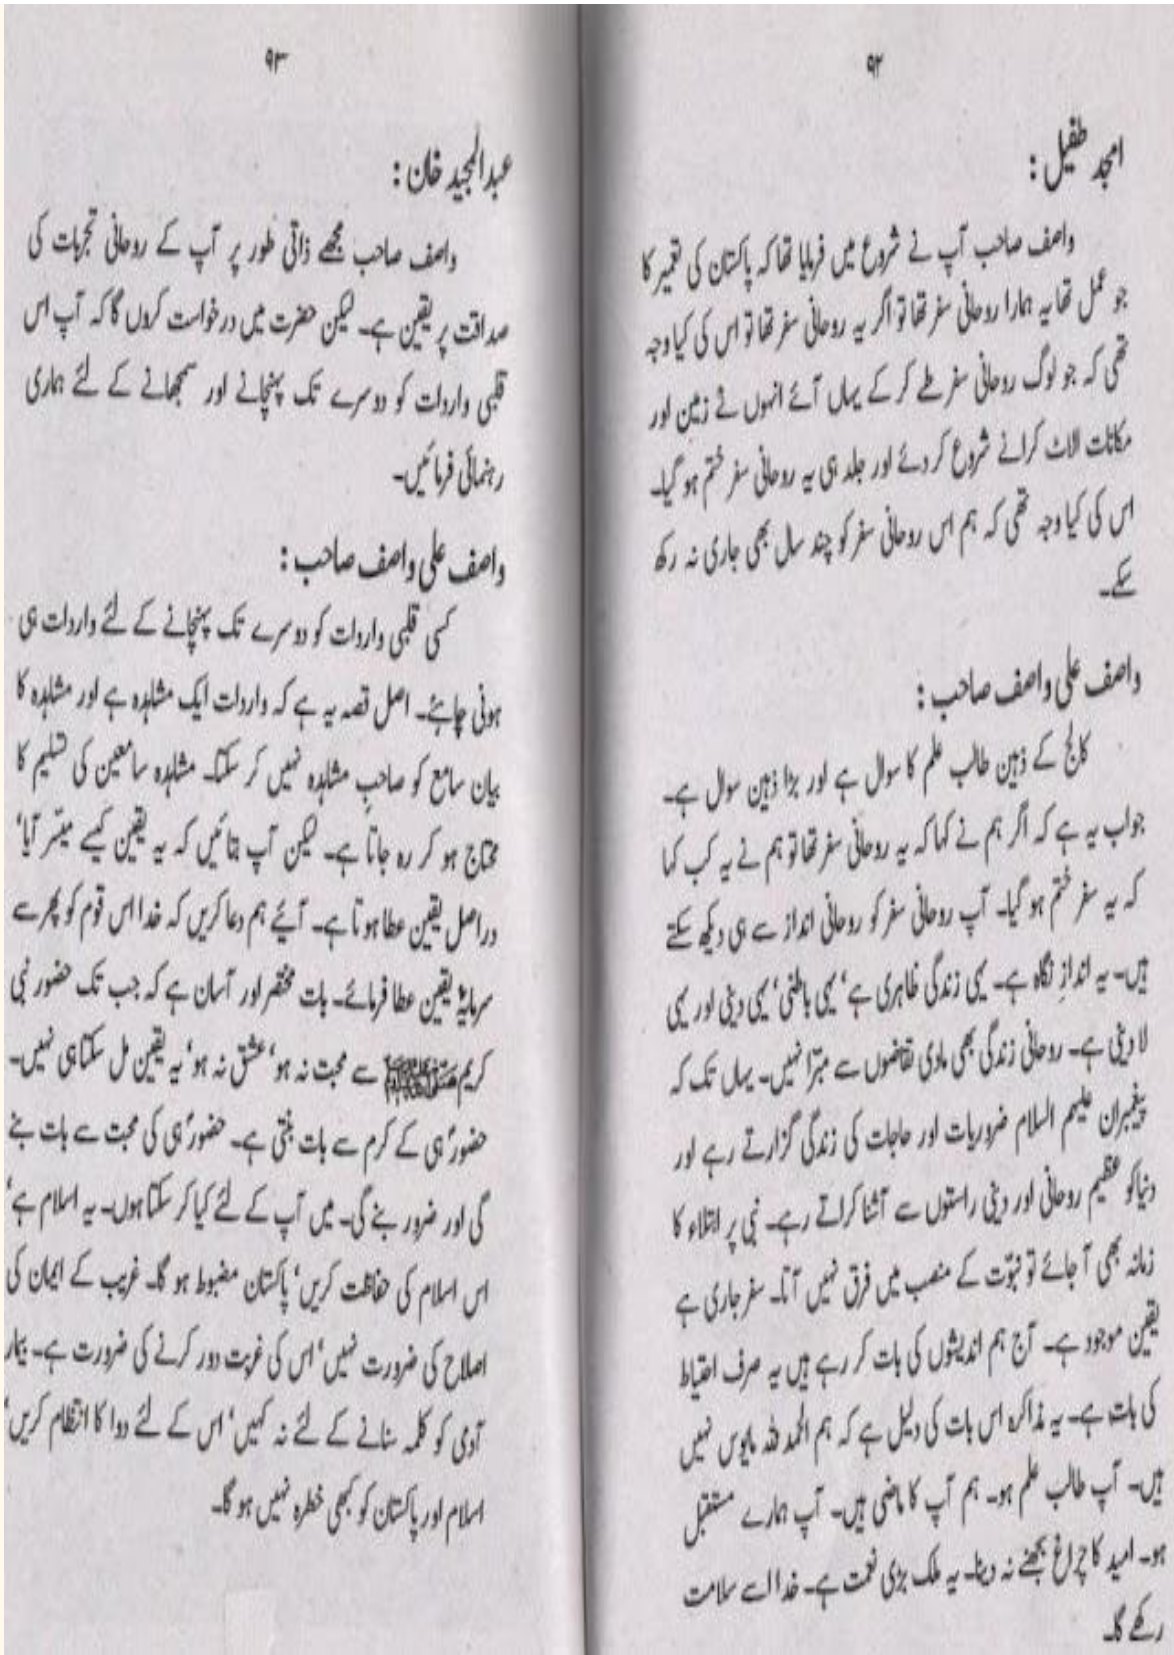 ۹۲
امجد طفیل :
واصف صاحب آپ نے شروع میں فرمایا تھا کہ پاکستان کی تعمیر کا
جو عمل تھا یہ ہمارا روحانی سفر تھا تو اگر یہ روحانی سفر تھا تو اس کی کیا وجہ
تھی کہ جو لوگ روحانی سفر طے کر کے یہاں آئے انہوں نے زمین اور
مکانات الاٹ کرانے شروع کر دئے اور جلد ہی یہ روحانی سفر ختم ہو گیا۔
اس کی کیا وجہ تھی کہ ہم اس روحانی سفر کو چند سال بھی جاری نہ رکھ
سکے۔
واصف علی واصف صاحب :
کالج کے ذہین طالب علم کا سوال ہے اور بڑا ذہین سوال ہے۔
جواب یہ ہے کہ اگر ہم نے کہا کہ یہ روحانی سفر تھا تو ہم نے یہ کب کہا
کہ یہ سفر ختم ہو گیا۔ آپ روحانی سفر کو روحانی انداز سے ہی دیکھ سکتے
ہیں۔ یہ اندازِ نگاہ ہے۔ یہی زندگی ظاہری ہے‘ یہی باطنی‘ یہی دینی اور یہی
لا دینی ہے۔ روحانی زندگی بھی مادی تقاضوں سے مبرّا نہیں۔ یہاں تک کہ
پیغمبران علیہم السلام ضروریات اور حاجات کی زندگی گزارتے رہے اور
دنیا کو عظیم روحانی اور دینی راستوں سے آشنا کراتے رہے۔ نبی پر ابتلاء کا
زمانہ بھی آ جائے تو نبوّت کے منصب میں فرق نہیں آتا۔ سفر جاری ہے
یقین موجود ہے۔ آج ہم اندیشوں کی بات کر رہے ہیں یہ صرف احتیاط
کی بات ہے۔ یہ مذاکرہ اس بات کی دلیل ہے کہ ہم الحمد للہ مایوس نہیں
ہیں۔ آپ طالب علم ہو۔ ہم آپ کا ماضی ہیں۔ آپ ہمارے مستقبل
ہو۔ امید کا چراغ بجھنے نہ دینا۔ یہ ملک بڑی نعمت ہے۔ خدا اسے سلامت
رکھے گا۔
۹۳
عبدالمجید خان :
واصف صاحب مجھے ذاتی طور پر آپ کے روحانی تجربات کی
صداقت پر یقین ہے۔ لیکن حضرت میں درخواست کروں گا کہ آپ اس
قلبی واردات کو دوسرے تک پہنچانے اور سمجھانے کے لئے ہماری
رہنمائی فرمائیں۔
واصف علی واصف صاحب :
کسی قلبی واردات کو دوسرے تک پہنچانے کے لئے واردات ہی
ہونی چاہئے۔ اصل قصہ یہ ہے کہ واردات ایک مشاہدہ ہے اور مشاہدہ کا
بیان سامع کو صاحبِ مشاہدہ نہیں کر سکتا۔ مشاہدہ سامعین کی تسلیم کا
محتاج ہو کر رہ جاتا ہے۔ لیکن آپ بتائیں کہ یہ یقین کیسے میسّر آیا‘
دراصل یقین عطا ہوتا ہے۔ آیئے ہم دعا کریں کہ خدا اس قوم کو پھر سے
سرمایۂ یقین عطا فرمائے۔ بات مختصر اور آسان ہے کہ جب تک حضور نبی
کریم صلی اللہ علیہ وسلم سے محبت نہ ہو‘ عشق نہ ہو‘ یہ یقین مل سکتا ہی نہیں۔
حضورؐ ہی کے کرم سے بات بنتی ہے۔ حضورؐ ہی کی محبت سے بات بنے
گی اور ضرور بنے گی۔ میں آپ کے لئے کیا کر سکتا ہوں۔ یہ اسلام ہے‘
اس اسلام کی حفاظت کریں‘ پاکستان مضبوط ہو گا۔ غریب کے ایمان کی
اصلاح کی ضرورت نہیں‘ اس کی غربت دور کرنے کی ضرورت ہے۔ بیمار
آدمی کو کلمہ سنانے کے لئے نہ کہیں‘ اس کے لئے دوا کا انتظام کریں‘
اسلام اور پاکستان کو کبھی خطرہ نہیں ہو گا۔